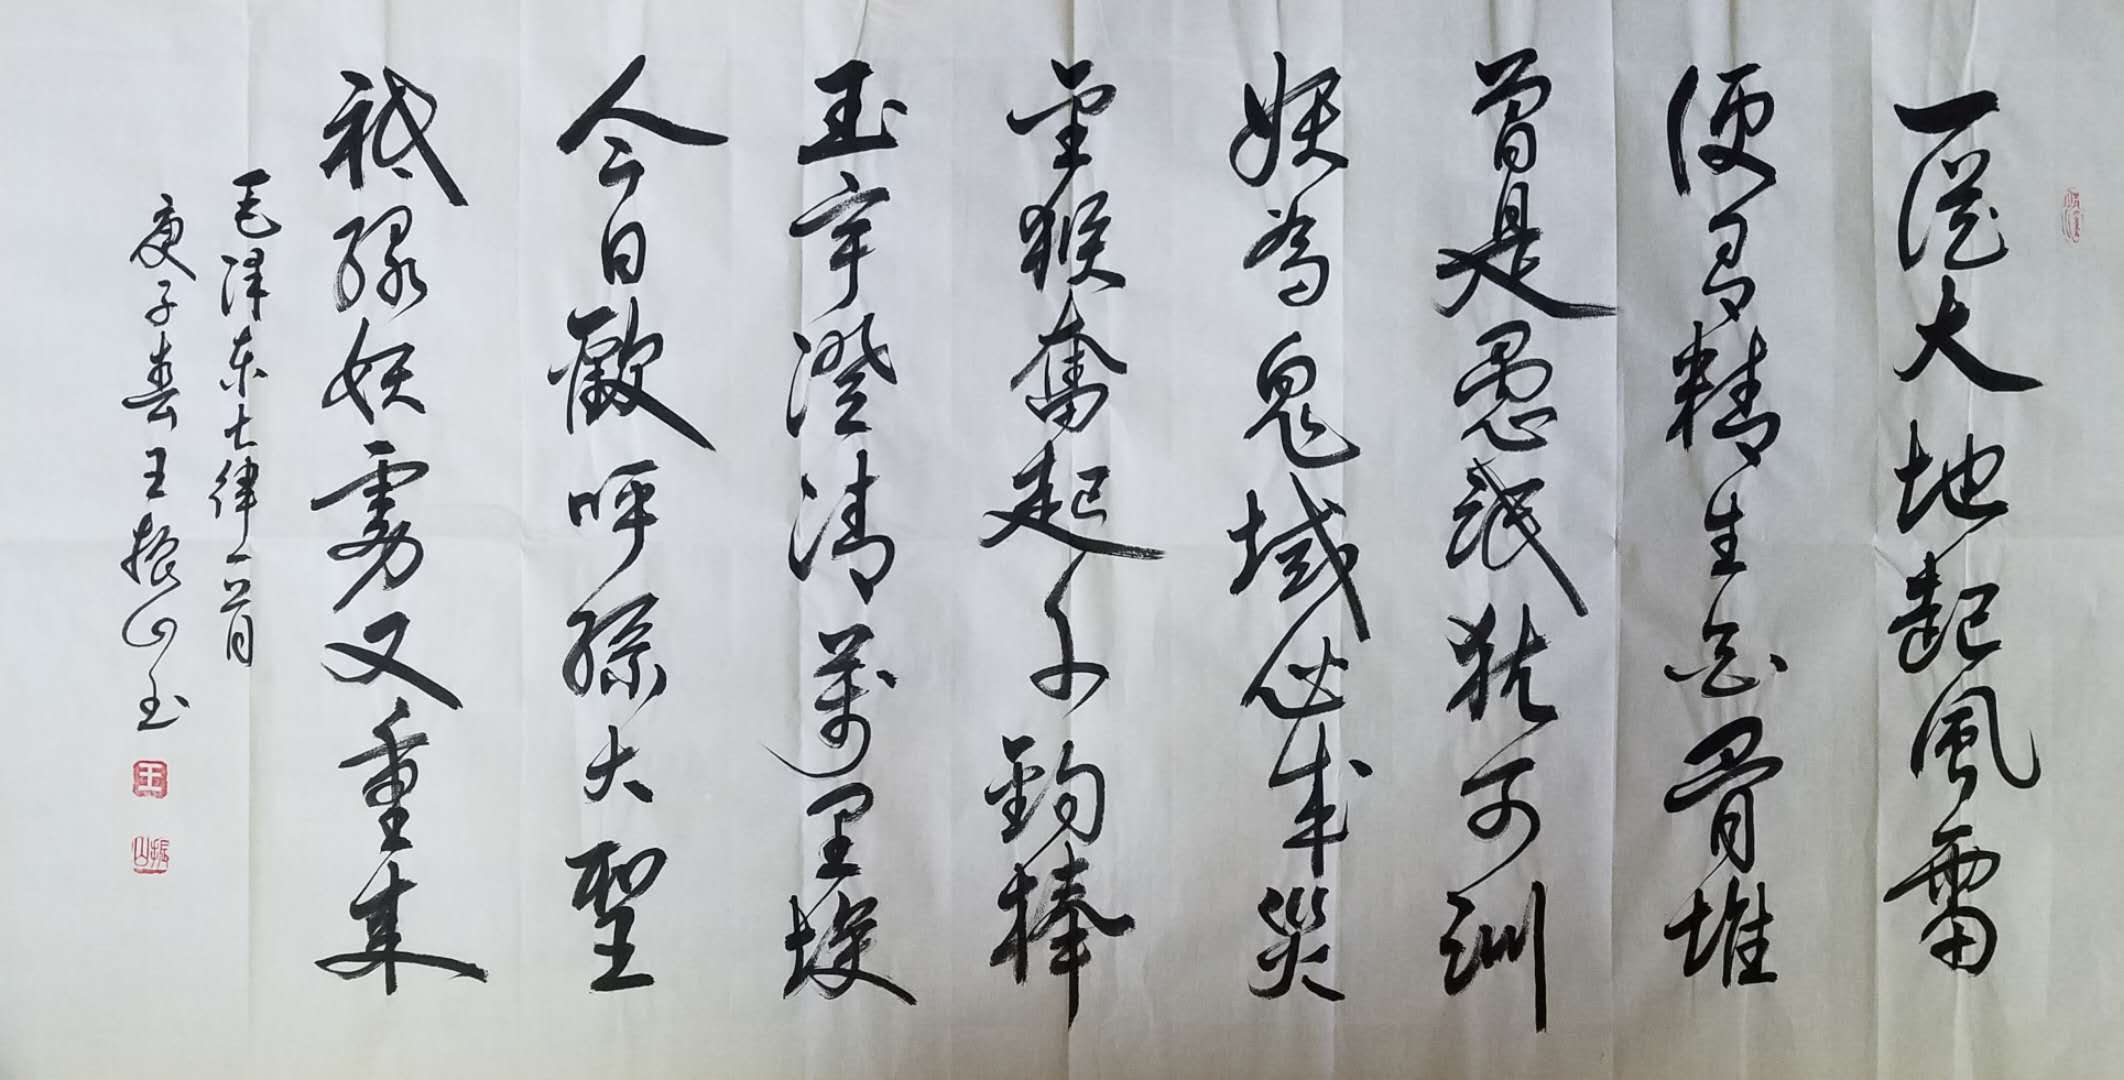 一從大地起風雷
便有精生白骨堆
曾是愚氓犹可訓
妖為鬼域必成災
金猴奮起千鈞棒
玉宇澄清萬里埃
今日歡呼孫大聖
祗緣妖雾又重来
毛泽东七律一首
庚子春王振山书
王
振山